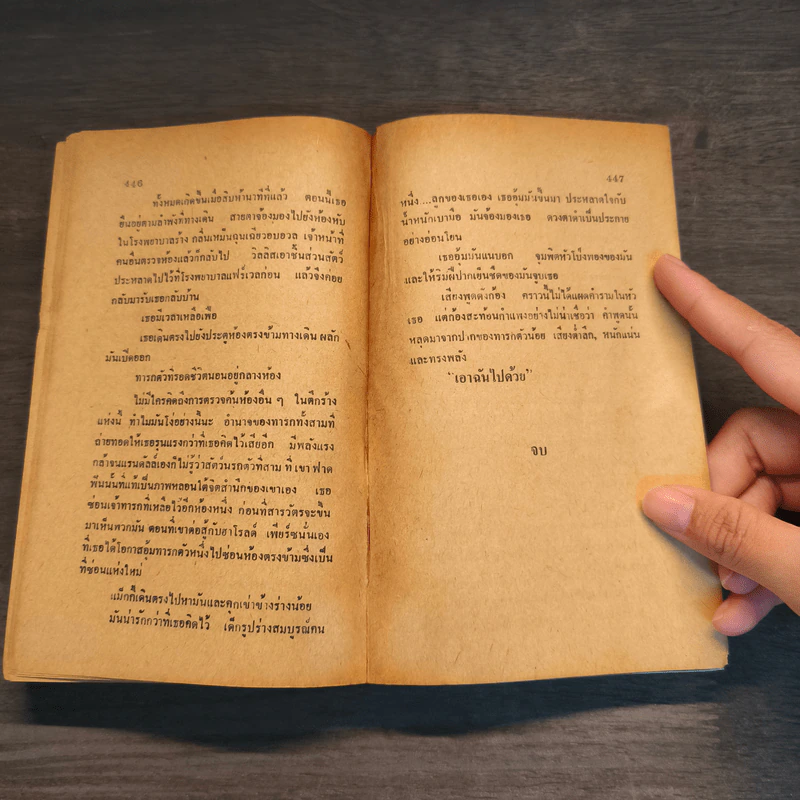 446
ทั้งหมดเกิดขึ้นเมื่อสิบห้านาทีที่แล้ว ตอนนี้เธอ
ยืนอยู่ตามลำพังที่ทางเดิน สายตาจ้องมองไปยังห้องหับ
ในโรงพยาบาลร้าง กลิ่นเหม็นฉุนเฉียวอบอวล เจ้าหน้าที่
คนอื่นตรวจห้องแล้วก็กลับไป วิลลิสเอาชิ้นส่วนสัตว์
ประหลาดไปไว้ที่โรงพยาบาลแฟร์เวลก่อน แล้วจึงค่อย
กลับมารับเธอกลับบ้าน
เธอมีเวลาเหลือเฟือ
เธอเดินตรงไปยังประตูห้องตรงข้ามทางเดิน ผลัก
มันเปิดออก
ทารกตัวที่รอดชีวิตนอนอยู่กลางห้อง
ไม่มีใครคิดถึงการตรวจค้นห้องอื่น ๆ ในตึกร้าง
แห่งนี้ ทำไมมันโง่อย่างนี้นะ อำนาจของทารกทั้งสามที่
ถ่ายทอดให้เธอรุนแรงกว่าที่เธอคิดไว้เสียอีก มีพลังแรง
กล้าจนแรนดัลล์เองก็ไม่รู้ว่าสัตว์นรกตัวที่สาม ที่เขาฟาด
ฟันนั้นที่แท้เป็นภาพหลอนใต้จิตสำนึกของเขาเอง เธอ
ซ่อนเจ้าทารกที่เหลือไว้อีกห้องหนึ่ง ก่อนที่สารวัตรจะขึ้น
มาเห็นพวกมัน ตอนที่เขาต่อสู้กับฮาโรลด์ เพียร์ซนั่นเอง
ที่เธอได้โอกาสอุ้มทารกตัวหนึ่งไปซ่อนห้องตรงข้ามซึ่งเป็น
ที่ซ่อนแห่งใหม่
แม็กกี้เดินตรงไปหามันและคุกเข่าข้างร่างน้อย
มันน่ารักกว่าที่เธอคิดไว้ เด็กรูปร่างสมบูรณ์คน
447
หนึ่ง...ลูกของเธอเอง เธออุ้มมันขึ้นมา ประหลาดใจกับ
น้ำหนักเบามือ มันจ้องมองเธอ ดวงตาดำเป็นประกาย
อย่างอ่อนโยน
เธออุ้มมันแนบอก จุมพิตหัวโป่งพองของมัน
และให้ริมฝีปากเย็นชืดของมันจูบเธอ
เสียงพูดดังก้อง คราวนี้ไม่ได้แผดคำรามในหัว
เธอ แต่ก้องสะท้อนกำแพงอย่างไม่น่าเชื่อว่า คำพูดนั้น
หลุดมาจากปากของทารกตัวน้อย เสียงต่ำลึก, หนักแน่น
และทรงพลัง
"เอาฉันไปด้วย"
จบ